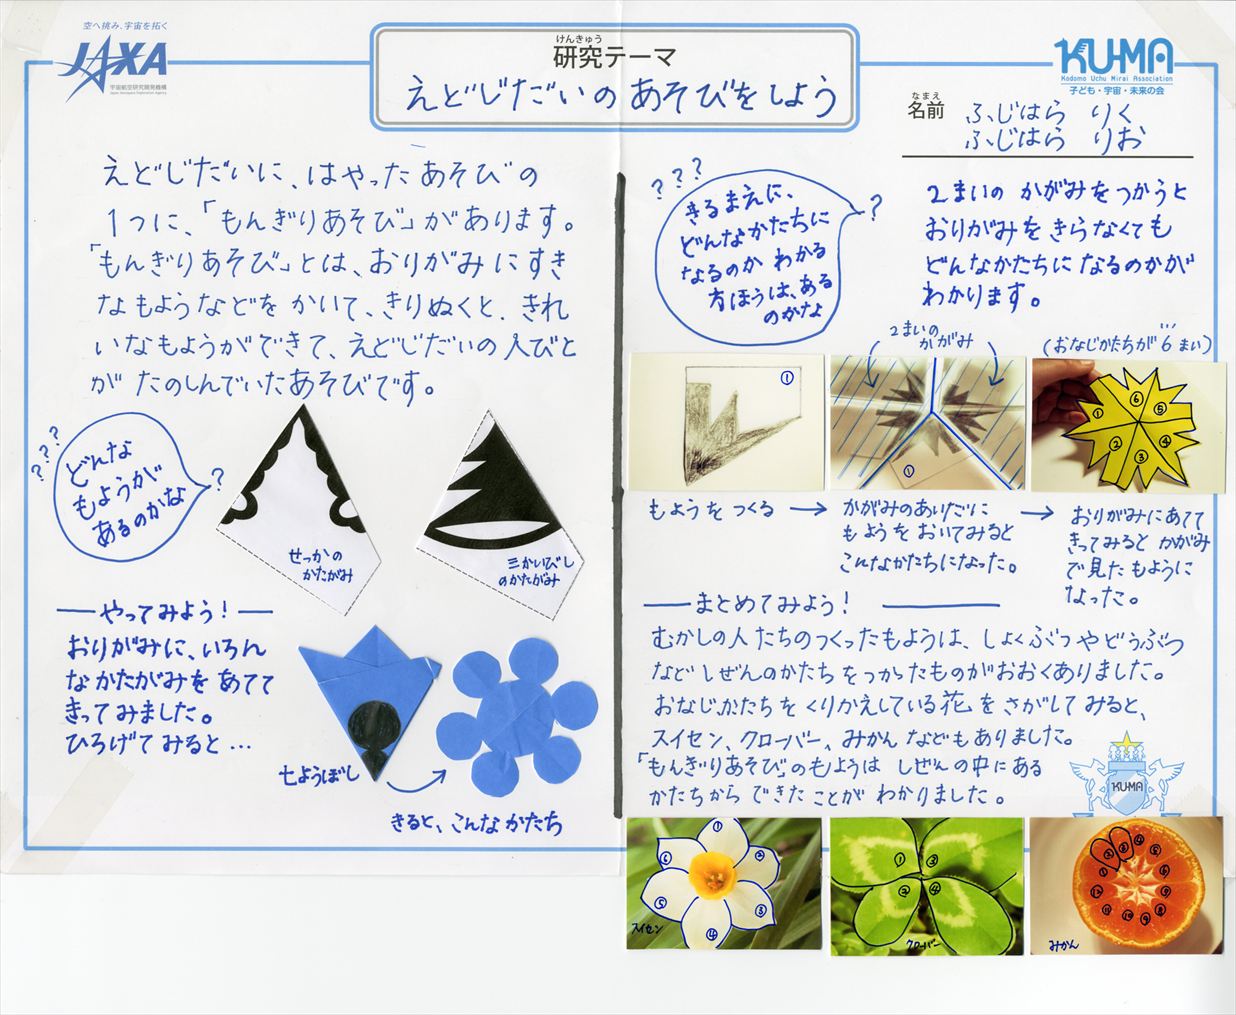 空へ挑み、宇宙を拓く
JAXA
宇宙航空研究開発機構
Japan Aerospace Exploration Agency
けんきゅう
研究テーマ
えどじだいの あそびをしよう
KU-MA
Kodomo Uchu Mirai Association
子ども・宇宙・未来の会
なまえ
名前
ふじはら りく
ふじはら りお
えどじだいに、はやったあそびの
1つに、「もんぎりあそび」があります。
「もんぎりあそび」とは、おりがみにすき
なもようなどを かいて、きりぬくと、きれ
いなもようができて、えどじだいの人びと
が たのしんでいたあそびです。
???
どんな
もようが
あるのかな
?
せっかの
かたがみ
三かいびし
のかたがみ
やってみよう!
おりがみに、いろん
な かたがみを あてて
きってみました。
ひろげてみると…
七ようぼし
きると、こんな かたち
???
きるまえに、
どんなかたちに
なるのか わかる
方ほうは、ある
のかな
?
2まいの かがみをつかうと
おりがみを きらなくても
どんなかたちに なるのかが
わかります。
2まいの
かがみ
(おなじかたちが 6 まい)
①
①
① ⑥ ⑤ ② ③ ④
もようを つくる →
かがみのあいだに
もようを おいてみると
こんなかたちになった。
→
おりがみにあてて
きってみると かがみ
で見た もように
なった。
まとめてみよう!
むかしの人たちのつくったもようは、しょくぶつやどうぶつ
など しぜんのかたち をつかったものがおおくありました。
おなじかたちを くりかえしている花 を さがしてみると、
スイセン、クローバー、みかん などもありました。
「もんぎりあそび」のもようは しぜんの中にある
かたちから できた ことが わかりました。
KUMA
① ② ③ ④ ⑤ ⑥
スイセン
① ③ ② ④
クローバー
① ② ③ ④ ⑤ ⑥ ⑦ ⑧ ⑨ ⑩ ⑪ ⑫
みかん